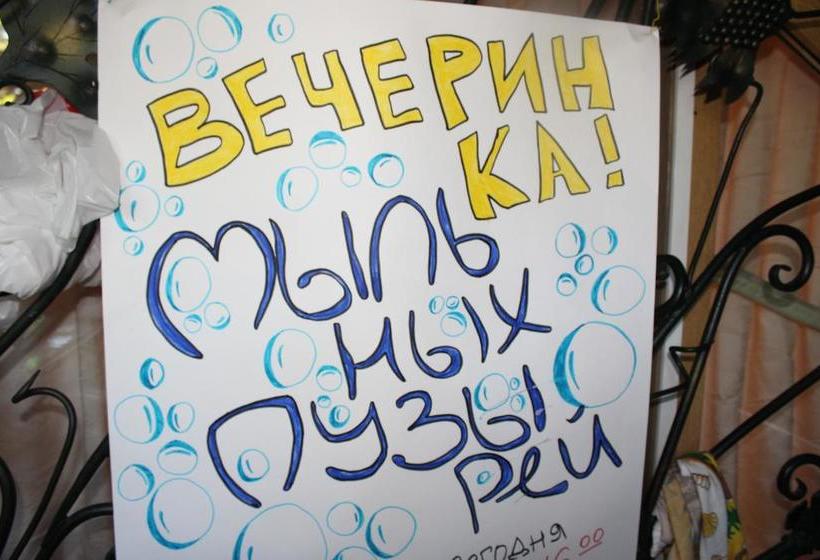 ВЕЧЕРИН
КА!
МЫЛЬ
НЫХ
ПУЗЫ
РЕЙ
СЕГОДНЯ